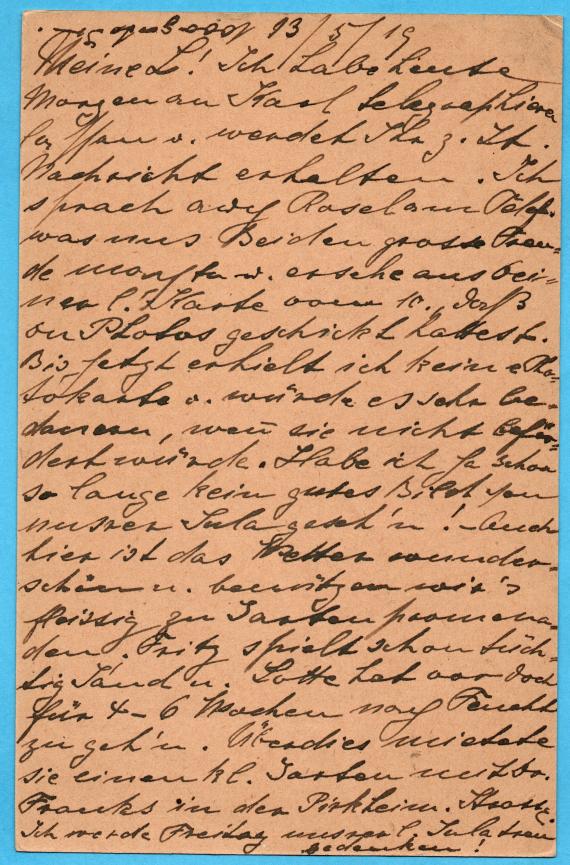 13/5/19
Meine L.! Ich habe heute
Morgen an Karl telegraphieren
lassen u. werdet Ihr z. Zt.
Nachricht erhalten. Ich
sprach auch Rosel am Telef.
was uns Beiden grosse Freu-
de machte u. ersehe aus Dei-
ner l. Karte vom 10., dass
du Photos geschickt hattest.
Bis jetzt erhielt ich keine Pho-
tokarte u. würde es sehr be-
dauern, wenn sie nicht beför-
dert würde. Habe ich ja schon
so lange kein gutes Bild von
unsrer Jula geseh'n! - Auch
hier ist das Wetter wunder-
schön u. benützen wir's
fleissig zu Garten promena-
den. Fritz spielt schon tüch-
tig Sand u. Lotte hat vor doch
für 4-6 Wochen nach Feucht
zu geh'n. Überdies mietete
sie einen kl. Garten mit Dr.
Franks in der Pirkheim. Strasse.
Ich werde Freitag unsrer l. Jula treu
gedenken!